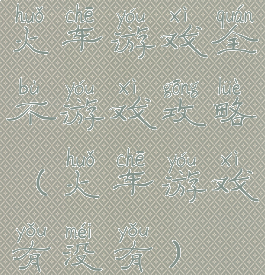 huǒ chē yóu xì quán
火车游戏全
bù yóu xì gōng lüè
不游戏攻略
huǒ chē yóu xì
（火车游戏
yǒu méi yǒu
有没有）